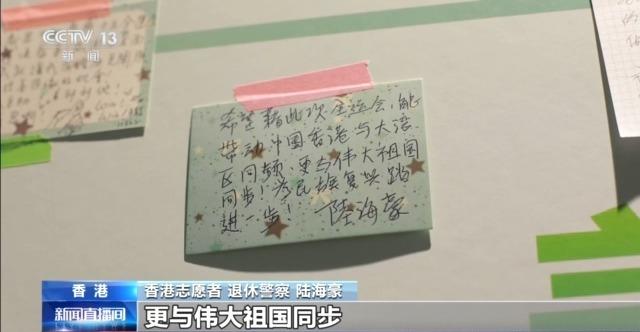 CCTV 13
新闻
希望藉此次全运会,能
带动中国香港与大湾
区同频,更与伟大祖国
同步!为民族复兴踏
进一步!
陸海豪
香港
香港志愿者 退休警察 陆海豪
新闻直播间
更与伟大祖国同步